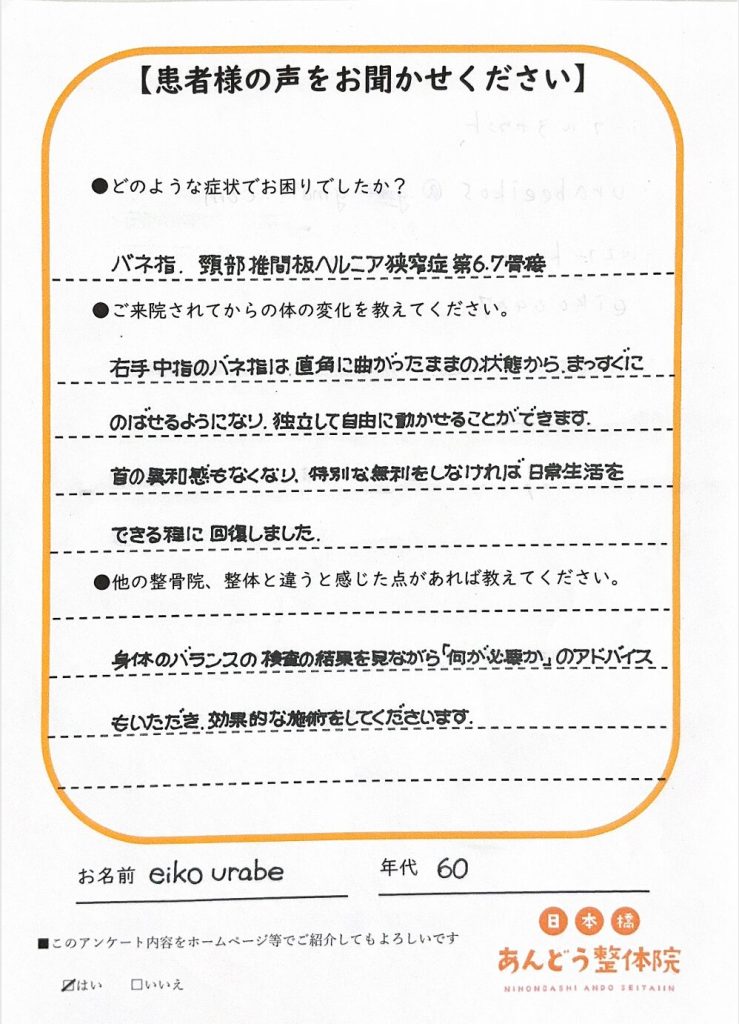 【患者様の声をお聞かせください】
●どのような症状でお困りでしたか？
バネ指. 頸部椎間板ヘルニア狭窄症 第6.7骨棘
●ご来院されてからの体の変化を教えてください。
右手中指のバネ指は、直角に曲がったままの状態から、まっすぐに
のばせるようになり、独立して自由に動かせることができます.
首の異和感もなくなり、特別な無利をしなければ日常生活を
できる程に回復しました.
●他の整骨院、整体と違うと感じた点があれば教えてください。
身体のバランスの検査の結果を見ながら「何が必要か」のアドバイス
もいただき、効果的な施術をしてくださいます.
お名前 eiko urabe 年代 60
■このアンケート内容をホームページ等でご紹介してもよろしいです
☑はい □いいえ
日本橋
あんどう整体院
NIHONBASHI ANDO SEITAIIN